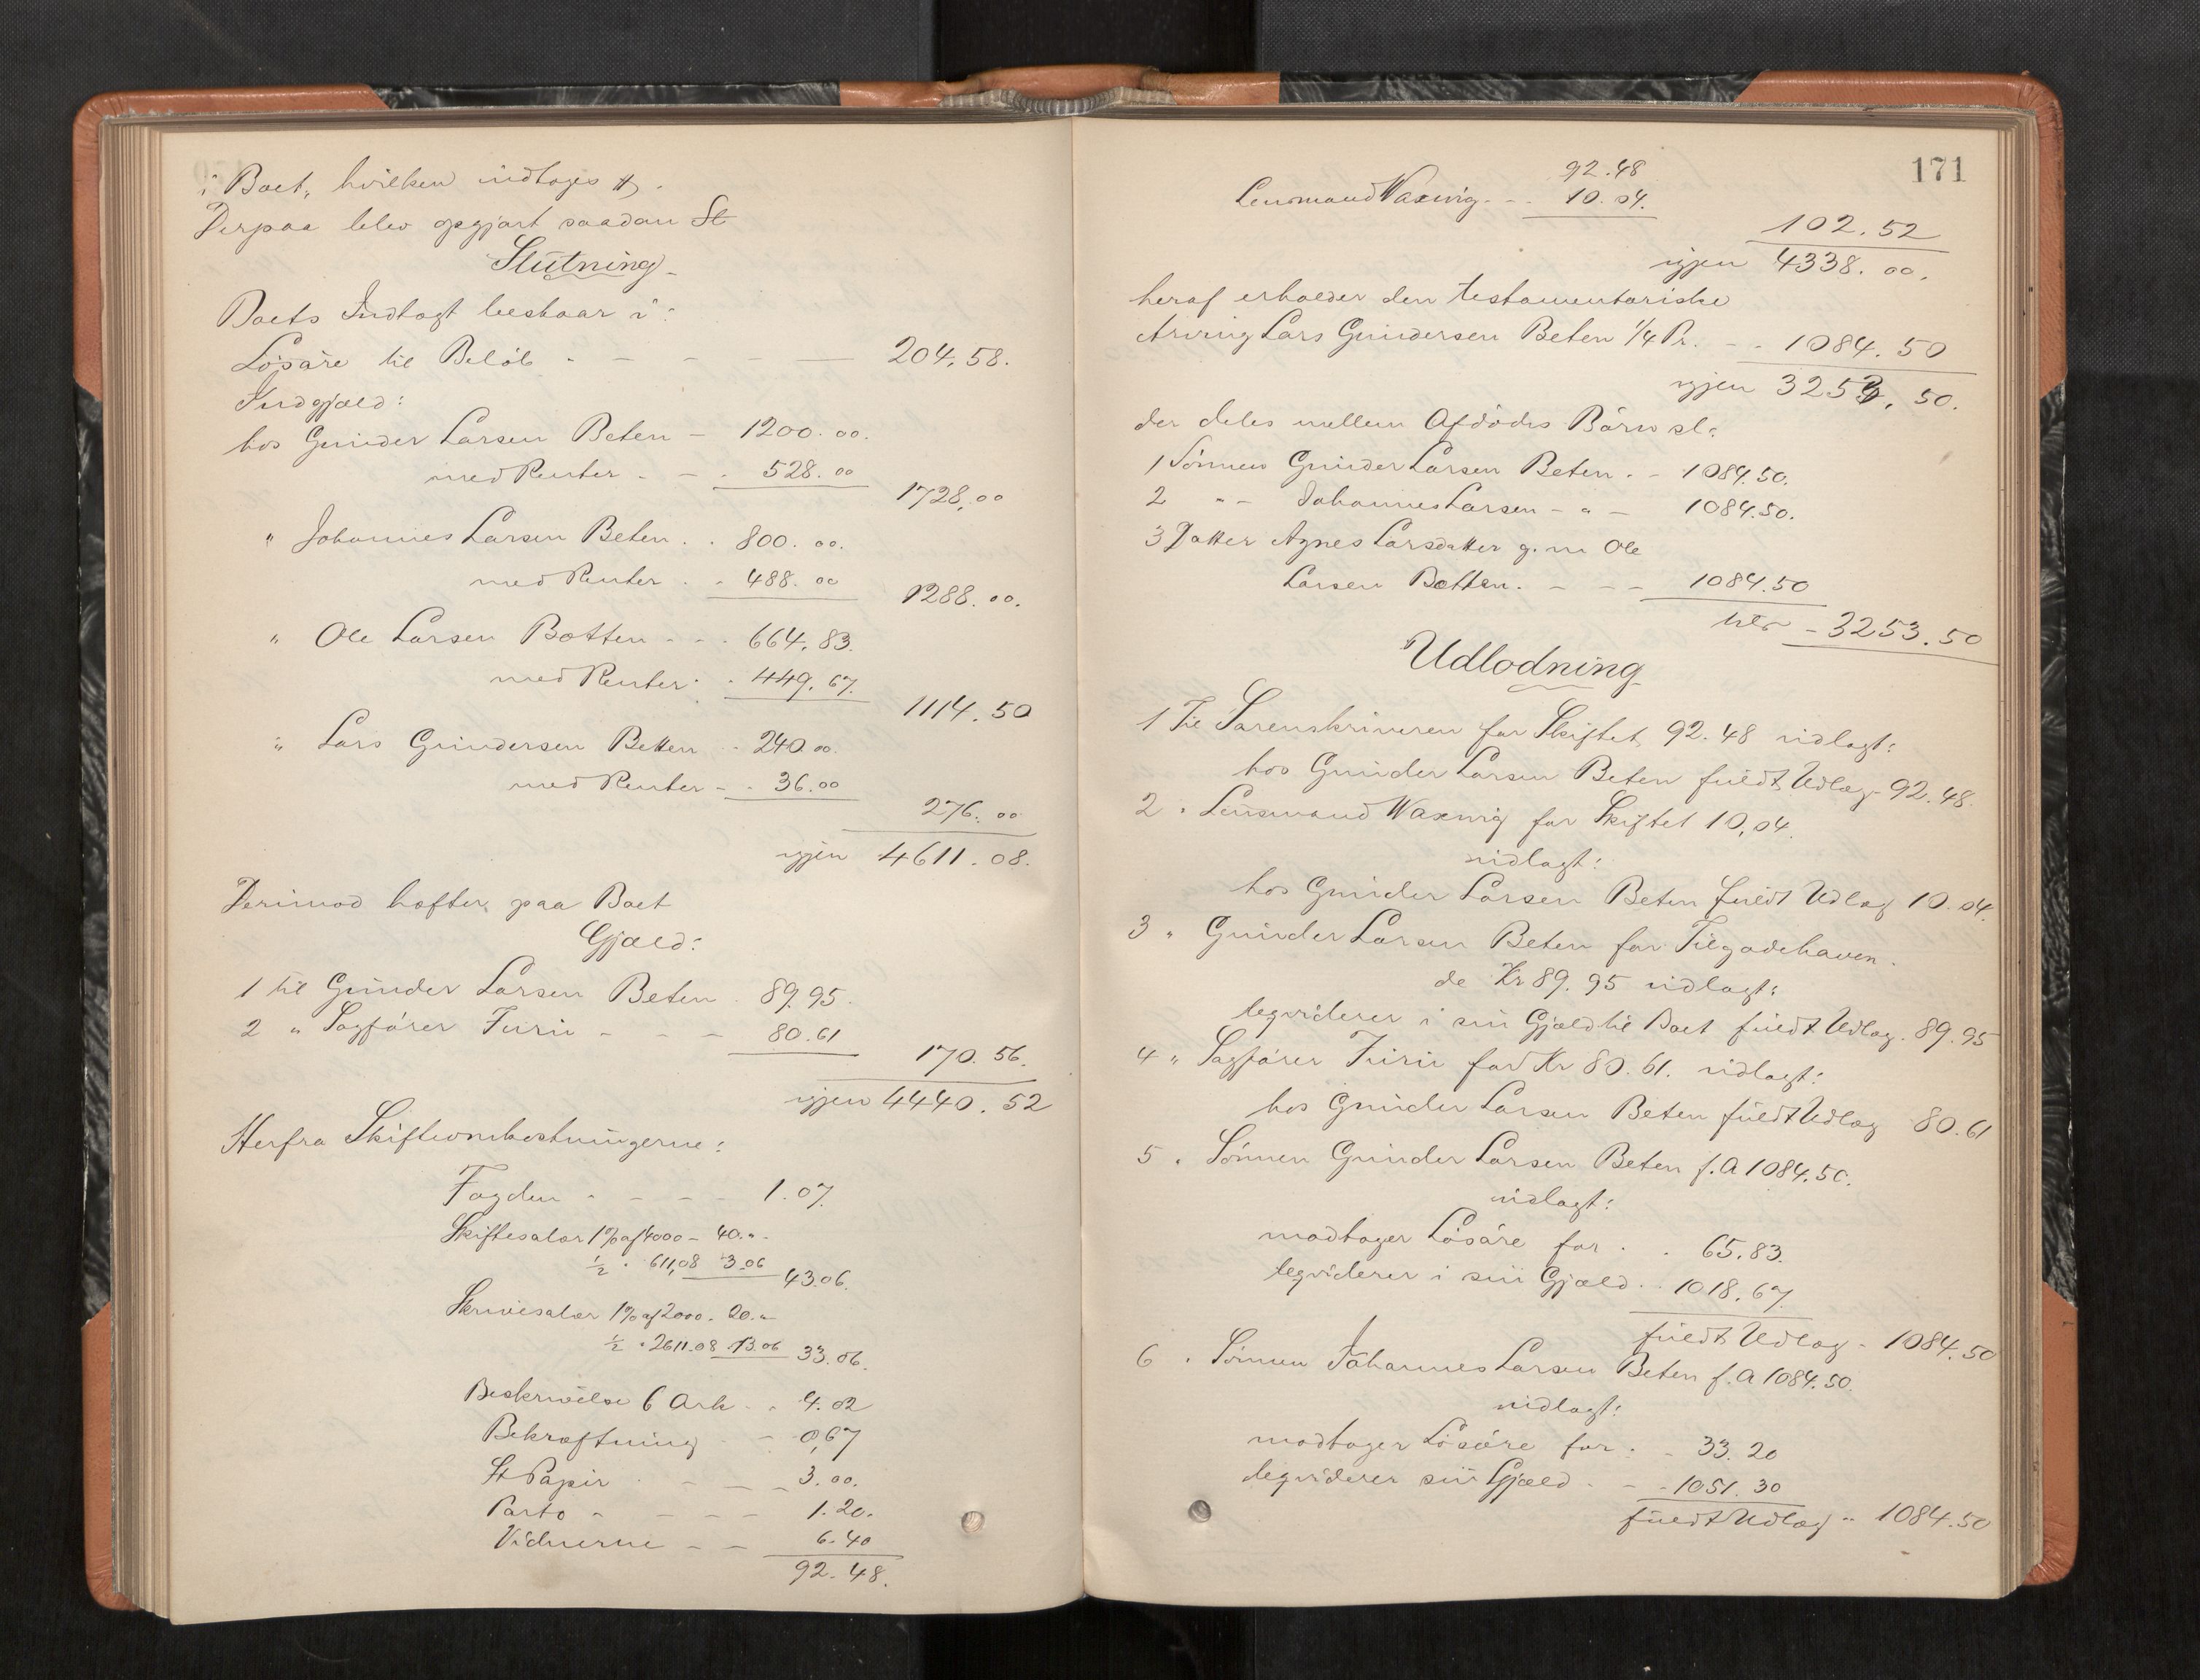 i Boet, hvilken indtoges #.
Derpaa blev opgjort saadan St
Slutning
Boets Indtægt bestaar i:
Løsøre til Beløb - - - - 204.58.
Indgjæld:
hos Gunder Larsen Beten - 1200.00.
med Renter - - 528.00
1728,00
" Johannes Larsen Beten . . 800.00.
med Renter . - 488.00
1288.00.
" Ole Larsen Botten - - . 664,83.
med Renter . 449.67.
1114.50
" Lars Gundersen Betten - 240.00.
med Renter - - 36.00
276.00
igjen 4611.08.
Derimod hæfter paa Boet
Gjæld:
1 til Gunder Larsen Beten . 89.95.
2 " Sagfører Furu - - - 80.61
170.56.
igjen 4440.52
Herfra Skifteomkostningerne:
Fogden - - - - 1.07.
Skiftesalær 1% af 4000 - 40.".
½ " 611,08 3.06
43.06.
Skrivesalær 1% af 2000. 20."
½ " 2611.08 13.06 33.06.
Beskrivelse 6 Ark . . 4.02
Bekræftning - - 0,67
St Papir . - - - 3.00.
Porto - - - - 1.20.
Vidnerne - - 6.40
92.48.
171
92.48
Lensmand Waxwig. - - 10.04.
102.52
igjen 4338.00.
heraf erholder den testamentariske
Arving Lars Gundersen Beten 1/4 Pr. - . 1084.50
igjen 3253, 50.
der deles mellem Afdødes Børn sl:
1 Sønnen Gunder Larsen Beten . - 1084.50.
2 " - Johannes Larsen - " - 1084.50.
3 Datter Agnes Larsdatter g. m Ole
Larsen Botten. - - - 1084.50
- 3253.50
Udlodning
1 Til Sorenskriveren for Skiftet 92.48 udlagt:
hos Gunder Larsen Beten fuldt Udlæg - 92.48.
2 " Lensmand Waxwig for Skiftet 10,04.
udlagt:
hos Gunder Larsen Beten fuldt Udlæg 10.04.
3 " Gunder Larsen Beten for Tilgodehaven-
de Kr 89.95 udlagt:
leqviderer i sin Gjæld til Boet fuldt Udlæg . 89.95
4 " Sagfører Furu for Kr 80.61. udlagt:
hos Gunder Larsen Beten fuldt Udlæg 80.61
5 " Sønnen Gunder Larsen Beten f. A 1084.50.
udlagt:
modtager Løsøre for . . 65.83.
leqviderer i sin Gjæld . . 1018.67.
fuldt Udlæg - 1084.50
6 " Sønnen Johannes Larsen Beten f. A 1084.50.
udlagt:
modtager Løsøre for . - 33.20
leqviderer sin Gjæld . - - 1051.30
fuldt Udlæg " 1084.50